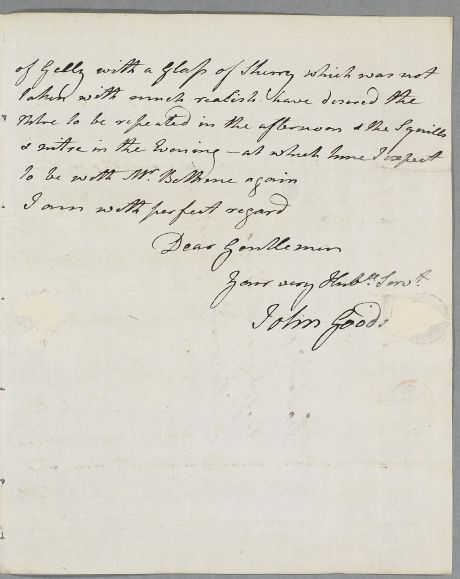 of Gelly with a Glass of Sherry which was not
taken with much realish have desired the
Nitre to be repeated in the afternoon & the Squills
& nitre in the Evening – at which time I expect
to be with Mr. Bethune again
I am with perfect regard
Dear Gentlemen
Your very Humble. Servt.
John Goods